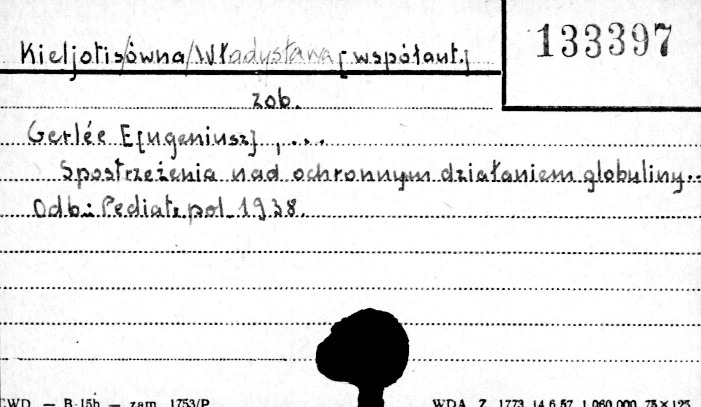 133397
Kieljotis/ówna/Władysława [współaut.]
zob.
Gerlée E[ugeniusz], ...
Spostrzeżenia nad ochronnym działaniem globuliny..
Odb.: Pediatr. pol. 1938.
CWD. — B-15h — zam. 1753/P
WDA. Z. 1773 14.6.57. 1.060.000. 75×125